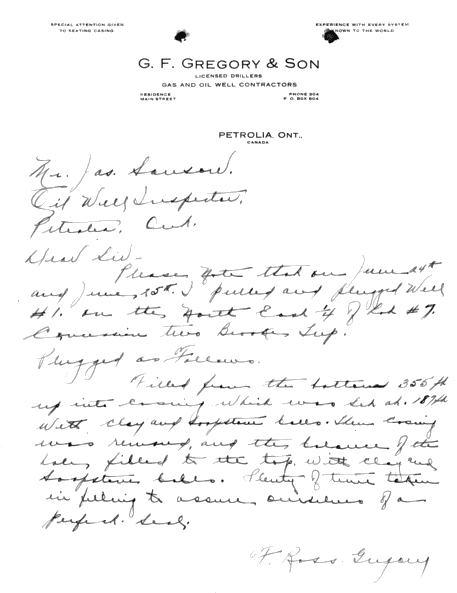 SPECIAL ATTENTION GIVEN
TO SEATING CASING
EXPERIENCE WITH EVERY SYSTEM
KNOWN TO THE WORLD
G. F. GREGORY & SON
LICENSED DRILLERS
GAS AND OIL WELL CONTRACTORS
RESIDENCE
MAIN STREET
PHONE 204
P. O. BOX 804
PETROLIA, ONT.,
CANADA
Mr. Jas.
Oil Well Inspector,
Petrolia, Ont.
Dear Sir -
Please Note that on June 24th
and June, 25th. I pulled and plugged Well
#1. on the North East 1/4 of Lot #7.
Concession two Brooke Twp.
Plugged as Follows.
Filled from the bottom 355 ft
up into casing which was set at. 187 ft
with clay and soapstone balls. Then casing
was removed, and the balance of the
hole, filled to the top, with clay and
soapstone balls. Plenty of time taken
in filling to assure ourselves of a
perfect. Seal.
F. Ross. Gregory